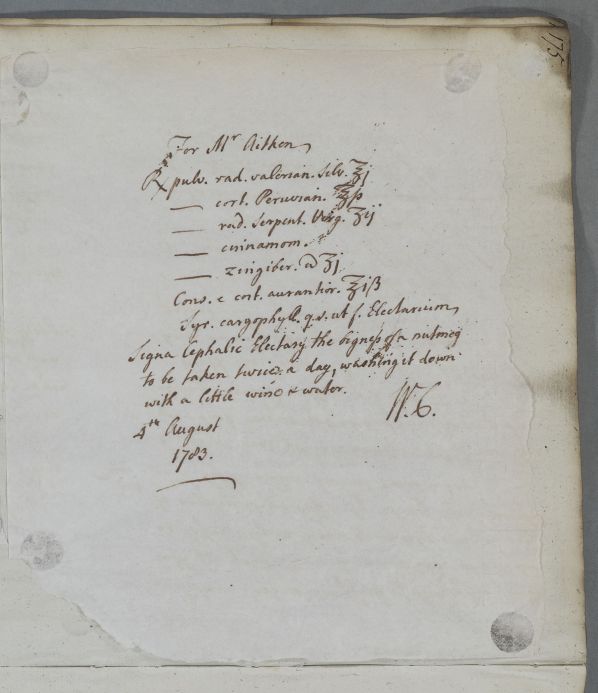 175
For Mr Aitken
℞ pulv. rad. valerian. Silv. ℥j
— cort. Peruvian. ℥ß
— rad. Serpent. Virg. ʒij
— cinnamom.
— zingiber. a ʒj
Cons. e cort. aurantior. ℥iß
Syr. caryophyll. q.s. ut f. Electarium
Signa Cephalic Electary the bigness of a nutmeg
to be taken twice a day, washing it down
with a little wine & water.
W.C.
4th August
1783.